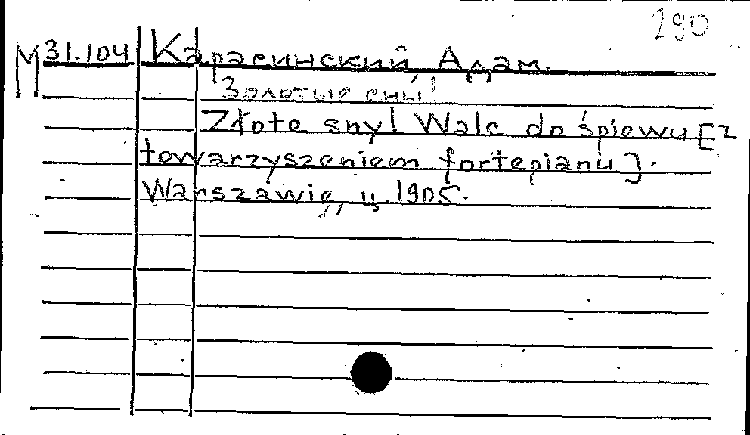 290
М 31.104 Карасинский, Адам.
Золотые сны!
Złote sny! Walc do śpiewu [z
towarzyszeniem fortepianu].
Warszawie, ц. 1905.